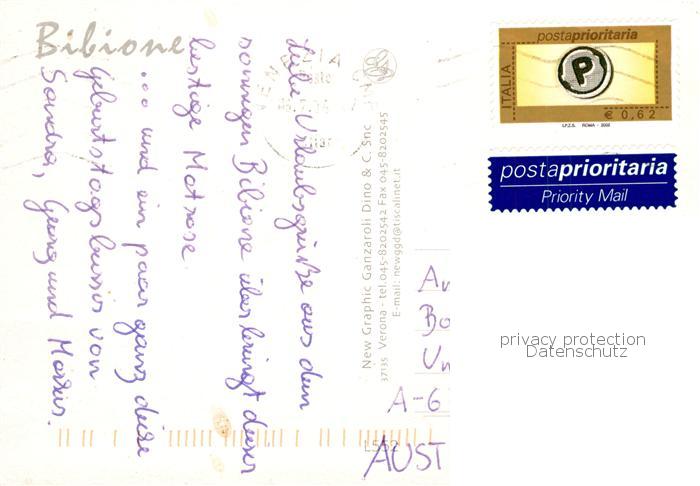 Bibione
Liebe Urlaubsgrüße aus dem
sonnigen Bibione überbringt dieser
lustige Matrose.
... und ein paar ganz dicke
Geburtstagsbussis von
Sandra, Georg und Markus.
New Graphic Ganzaroli Dino & C. Snc
37135 Verona - tel.045-8202542 Fax 045-8202545
E-mail: newggd@tiscalinet.it
postaprioritaria
ITALIA
P
€ 0,62
I.P.Z.S. ROMA - 2002
postaprioritaria
Priority Mail
privacy protection
Datenschutz
A-6
AUST
L552